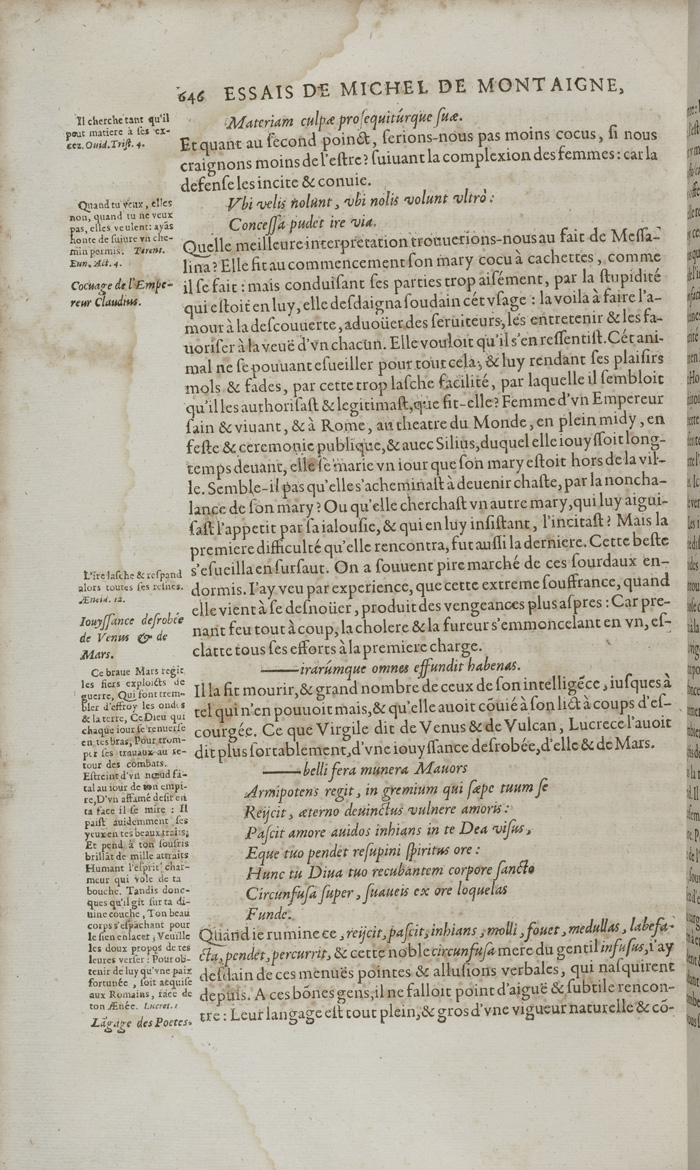 646 ESSAIS DE MICHEL DE MONTAIGNE,
Materiam culpæ prosequitúrque suæ.
Et quant au second poinct, serions-nous pas moins cocus, si nous
craignons moins de l'estre? suiuant la complexion des femmes: car la
defense les incite & conuie.
Vbi velis nolunt, vbi nolis volunt vltrò:
Concessa pudet ire via.
Quelle meilleure interpretation trouuerions-nous au fait de Messa-
lina? Elle fit au commencement son mary cocu à cachettes, comme
il se fait: mais conduisant ses parties trop aisément, par la stupidité
qui estoit en luy, elle desdaigna soudain cét vsage: la voilà à faire l'a-
mour à la descouuerte, aduoüer des seruiteurs, les entretenir & les fa-
uoriser à la veuë d'vn chacun. Elle vouloit qu'il s'en ressentist. Cét ani-
mal ne se pouuant esueiller pour tout cela, & luy rendant ses plaisirs
mols & fades, par cette trop lasche facilité, par laquelle il sembloit
qu'il les authorisast & legitimast, que fit-elle? Femme d'vn Empereur
sain & viuant, & à Rome, au theatre du Monde, en plein midy, en
feste & ceremonie publique, & auec Silius, duquel elle iouyssoit long-
temps deuant, elle se marie vn iour que son mary estoit hors de la vil-
le. Semble-il pas qu'elle s'acheminast à deuenir chaste, par la noncha-
lance de son mary? Ou qu'elle cherchast vn autre mary, qui luy aigui-
sast l'appetit par sa ialousie, & qui en luy insistant, l'incitast? Mais la
premiere difficulté qu'elle rencontra, fut aussi la derniere. Cette beste
s'esueilla en sursaut. On a souuent pire marché de ces sourdaux en-
dormis. I'ay veu par experience, que cette extreme souffrance, quand
elle vient à se desnoüer, produit des vengeances plus aspres: Car pre-
nant feu tout à coup, la cholere & la fureur s'emmoncelant en vn, es-
clatte tous ses efforts à la premiere charge.
——irarúmque omnes effundit habenas.
Il la fit mourir, & grand nombre de ceux de son intelligẽce, iusques à
tel qui n'en pouuoit mais, & qu'elle auoit cõuié à son lict à coups d'es-
courgée. Ce que Virgile dit de Venus & de Vulcan, Lucrece l'auoit
dit plus sortablement, d'vne iouyssance desrobée, d'elle & de Mars.
——belli fera munera Mauors
Armipotens regit, in gremium qui sæpe tuum se
Reijcit, æterno deuinctus vulnere amoris:
Pascit amore auidos inhians in te Dea visus,
Eque tuo pendet resupini spiritus ore:
Hunc tu Diua tuo recubantem corpore sancto
Circunfusa super, suaueis ex ore loquelas
Funde.
Quand ie rumine ce, reijcit, pascit, inhians, molli, fouet, medullas, labefa-
cta, pendet, percurrit, & cette noble circunfusa mere du gentil infusus, i'ay
desdain de ces menuës pointes & allusions verbales, qui nasquirent
depuis. A ces bõnes gens, il ne falloit point d'aiguë & subtile rencon-
tre: Leur langage est tout plein, & gros d'vne vigueur naturelle & cõ-
Il cherche tant qu'il
peut matiere à ses ex-
cez. Ouid. Trist. 4.
Quand tu veux, elles
non, quand tu ne veux
pas, elles veulent: ayãs
honte de suiure vn che-
min permis. Terent.
Eun. Act. 4.
Cocuage de l'Empe-
reur Claudius.
L'ire lasche & respand
alors toutes ses resnes.
Æneid. 12.
Iouyssance desrobée
de Venus & de
Mars.
Ce braue Mars regit
les fiers exploicts de
guerre, Qui font trem-
bler d'effroy les ondes
& la terre, Ce Dieu qui
chaque iour se renuerse
en tes bras, Pour trom-
per ses trauaux au se-
tour des combats.
Estreint d'vn nœud fa-
tal au iour de ton empi-
re, D'vn affamé desir en
ta face il se mire: Il
paist auidemment ses
yeux en tes beaux traits;
Et pend à ton souris
brillãt de mille attraits
Humant l'esprit char-
meur qui vole de ta
bouche. Tandis donc-
ques qu'il gît sur ta di-
uine couche, Ton beau
corps s'espachant pour
le sien enlacer; Veuille
les doux propos de tes
leures verser: Pour ob-
tenir de luy qu'vne paix
fortunée, soit acquise
aux Romains, race de
ton Ænée. Lucret. 1
Lãgage des Poetes.